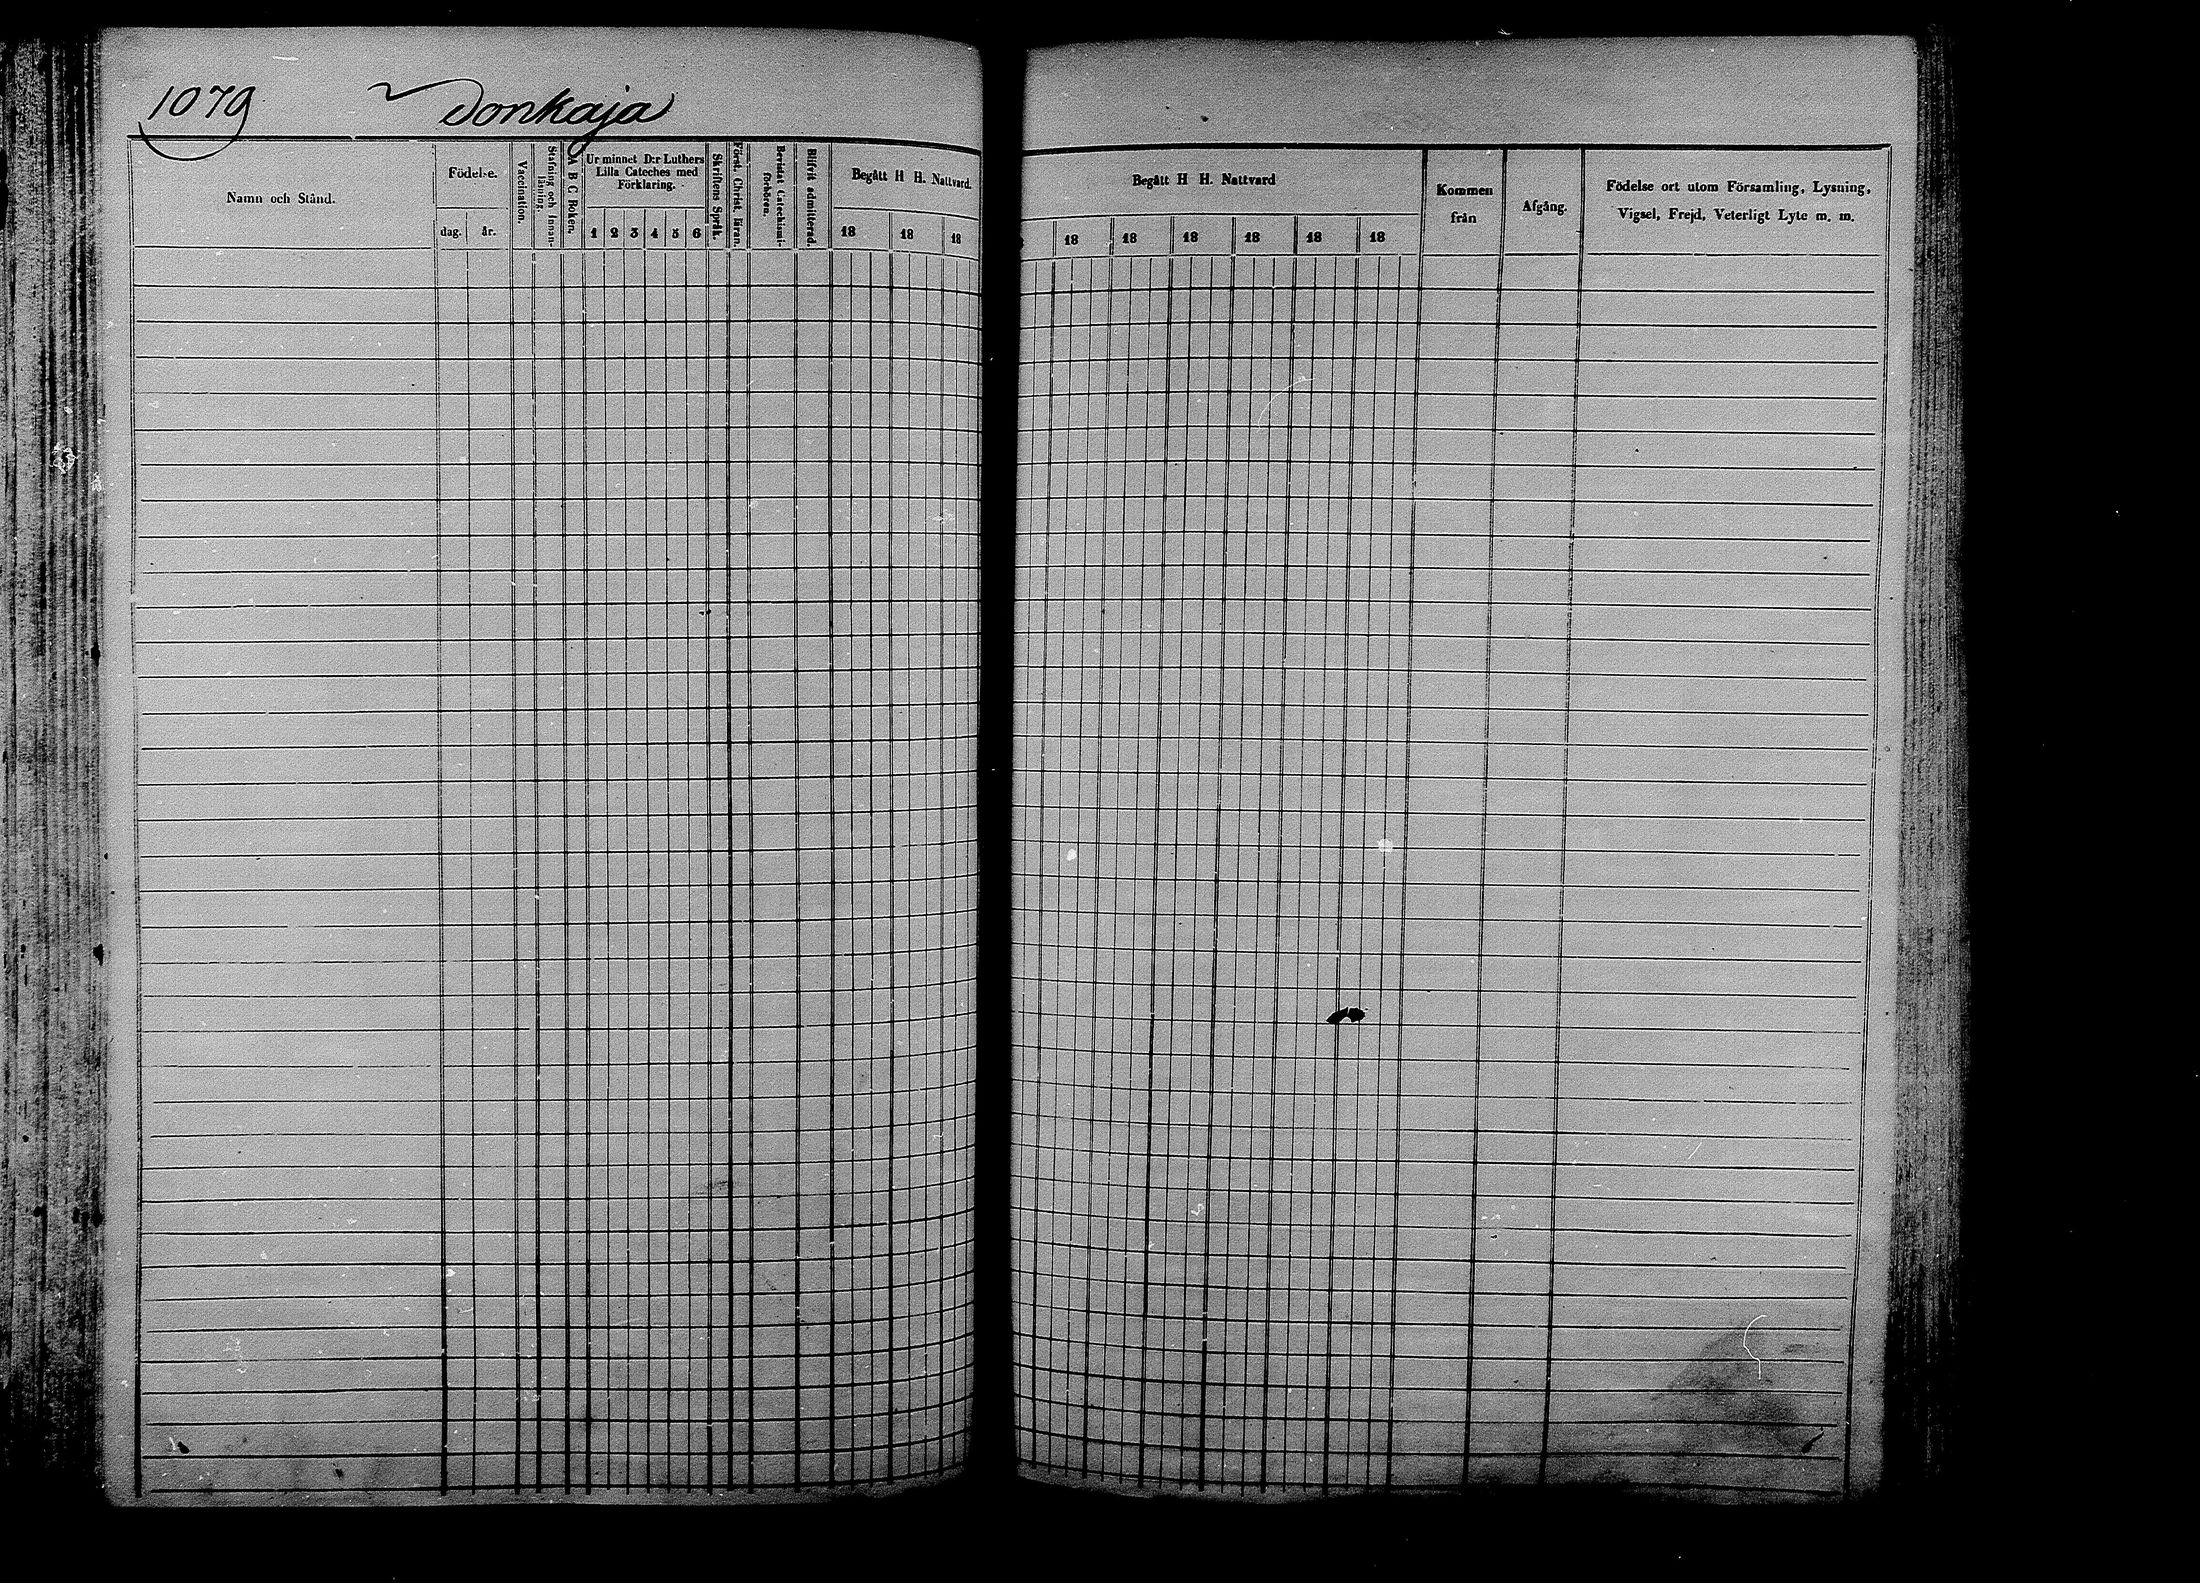 1079 Jonkaja
Namn och Stånd.
Födelse.
dag. år.
Vaccination.
Stafning och Innan-
läsning.
A B C Boken.
Ur minnet D:r Luthers
Lilla Cateches med
Förklaring.
1 2 3 4 5 6
Skriftens Språk.
Först. Christ. läran.
Bevistat Catechismi-
förhören.
Blifvit admitterad.
Begått H H. Nattvard.
18 18 18
Begått H H. Nattvard
18 18 18 18 18 18
Kommen
från
Afgång.
Födelse ort utom Församling, Lysning,
Vigsel, Frejd, Veterligt Lyte m. m.